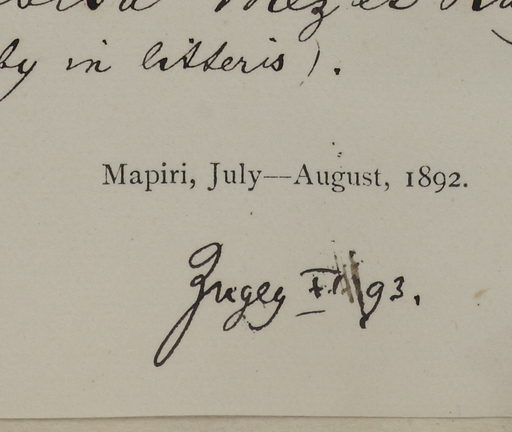 Mez et
by in litteris).
Mapiri, July—August, 1892.
93.